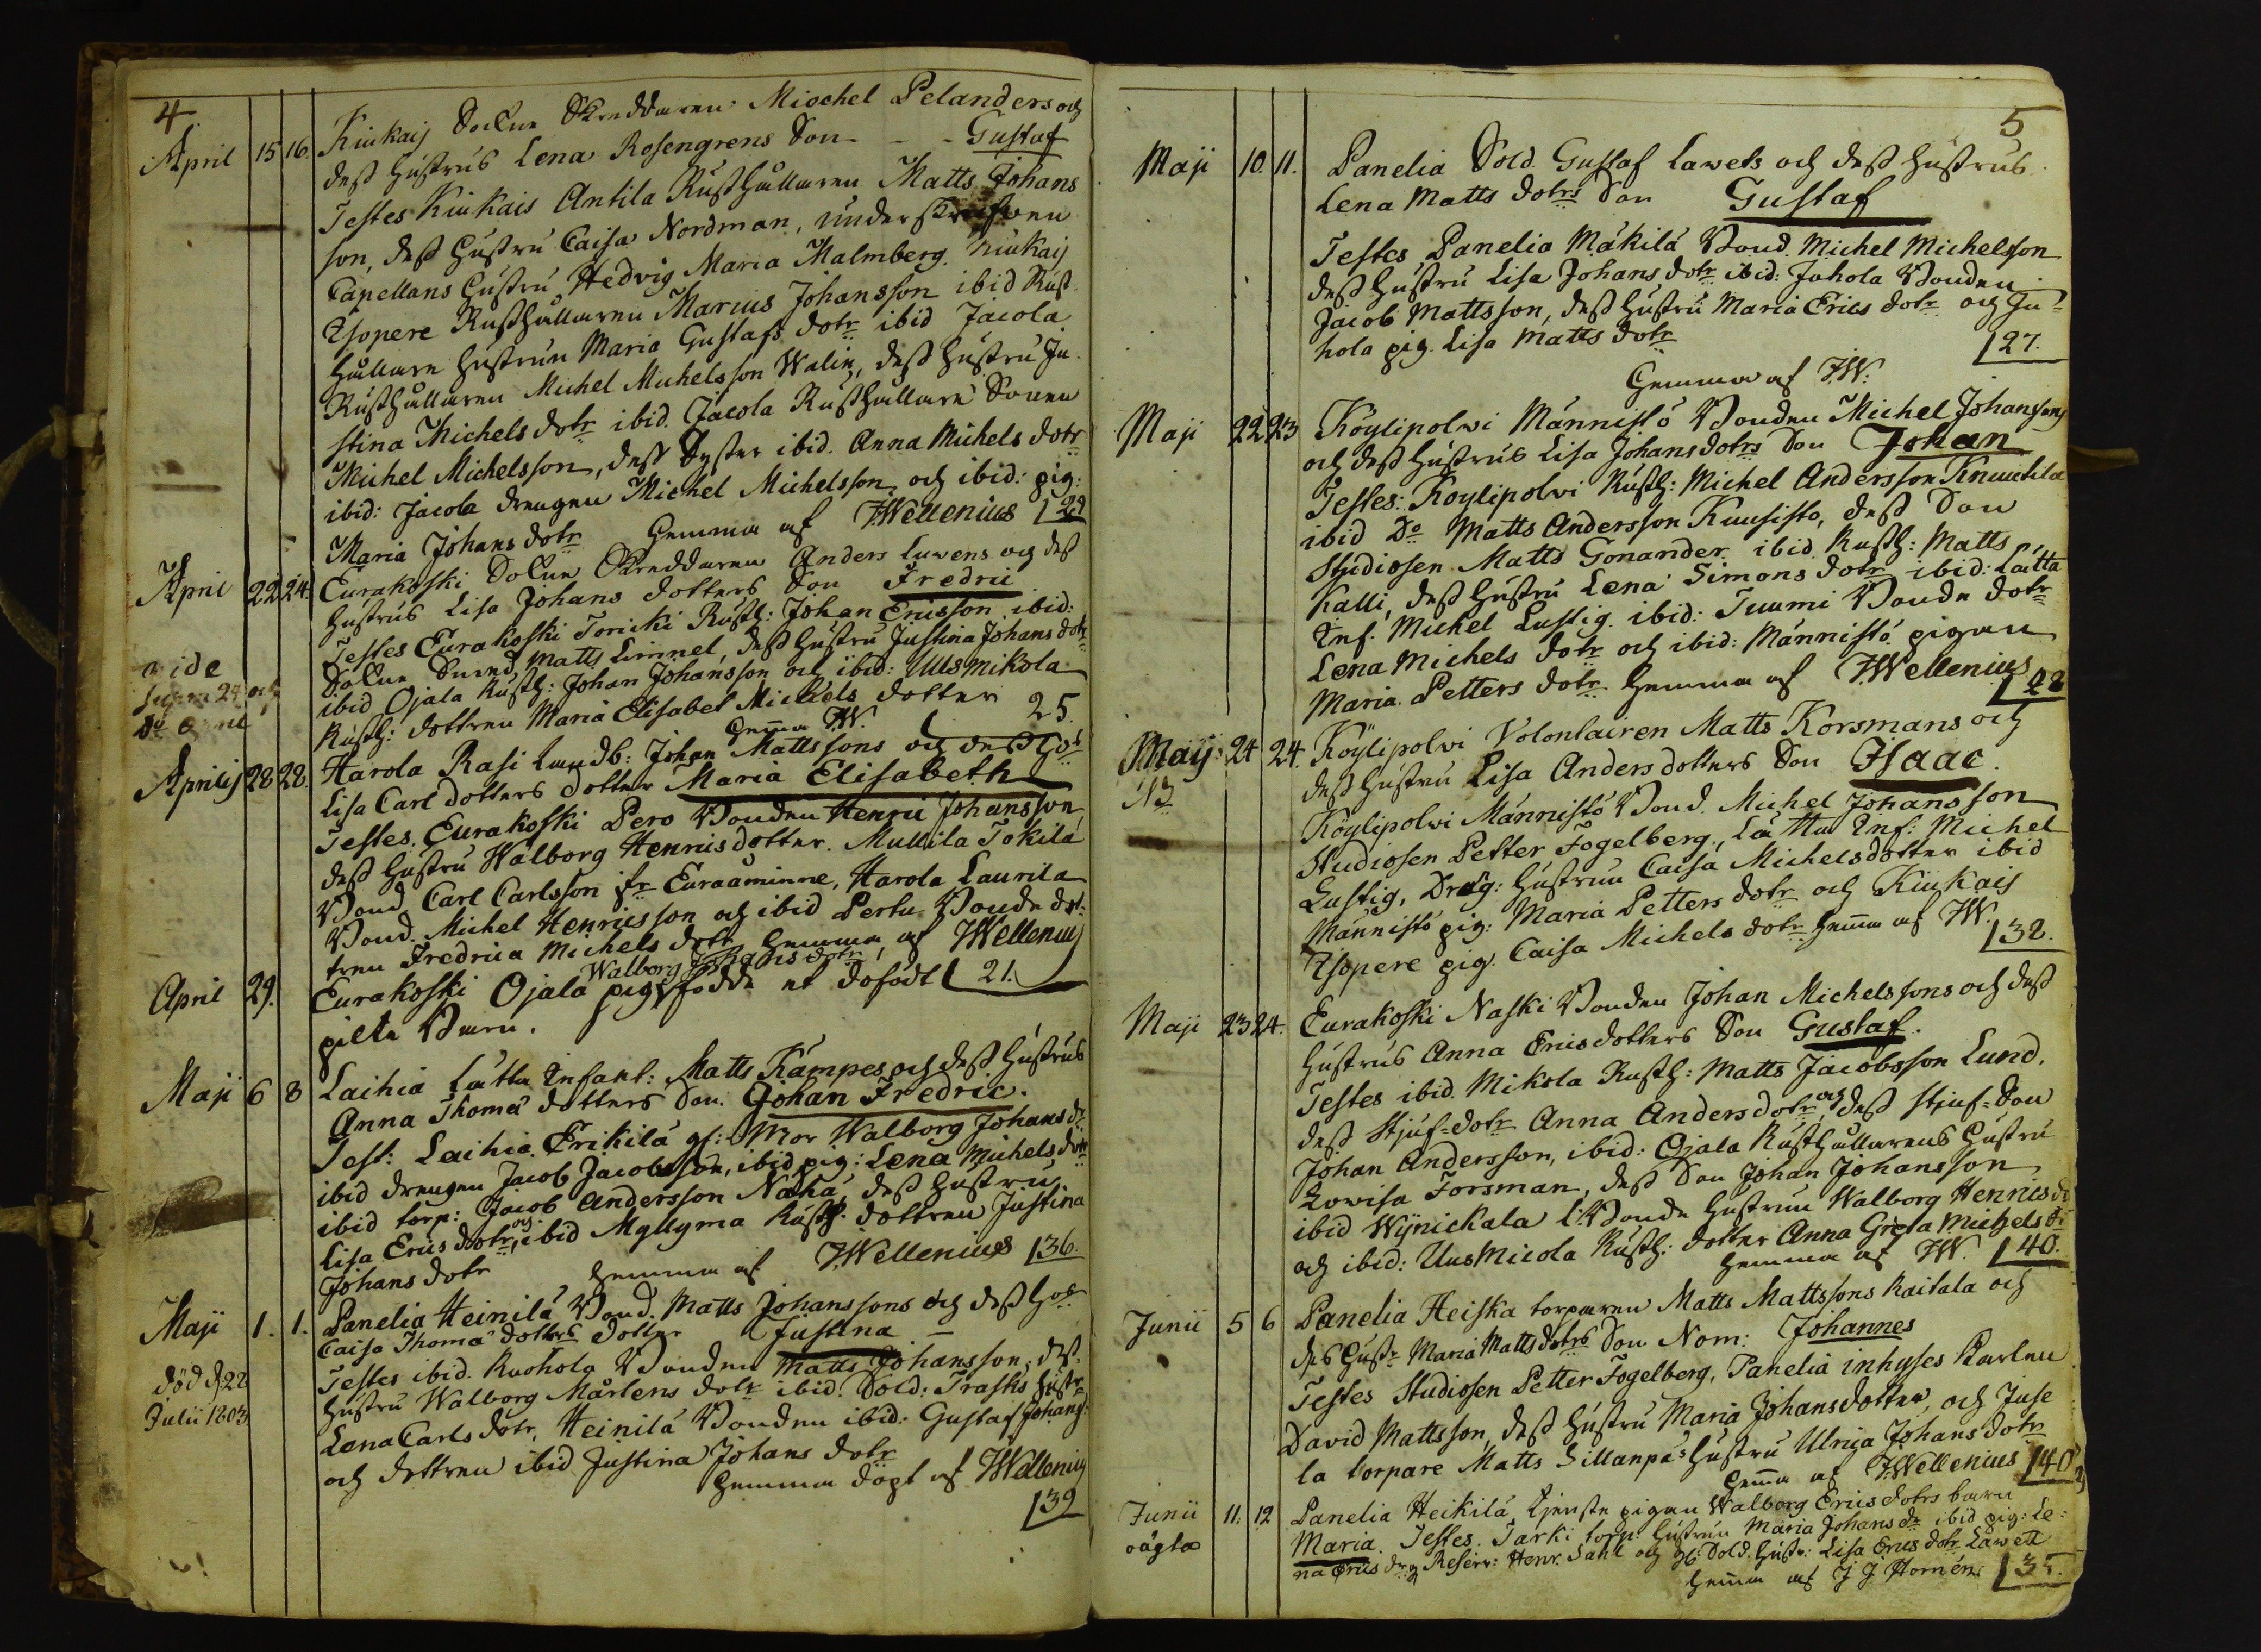 4
April 15 16. Kiukais Socknе Skreddaren Miochel Pelanders och
dess hustrus Lena Rosengrens Son - - - Gustaf
Testes Kiukais Antila Rusthållaren Matts Johans
son, dess hustru Caisa Nordman, underskrefwen
Capellans hustru Hedvig Maria Malmberg. Kiukais
Ysopere Rusthållaren Marius Johansson ibid Rust
hållare hustrun Maria Gustafs dotr ibid Jacola
Rusthållaren Michel Michelsson Walin, dess hustru Ju-
stina Michels dotr ibid. Jacola Rusthållare Sonen
Michel Michelsson, dess Syster ibid. Anna Michels dotr
ibid: Jacola drengen Michel Michelsson och ibid: pig:
Maria Johans dotr Hemma af JWellenius 29
April 22 24. Eurakoski Sockne Skreddaren Anders Luwens och dess
hustrus Lisa Johans dotters Son Fredric
Testes Eurakoski Toricki Rusth: Johan Ericsson ibid:
Sockne Matts Linnel, dess hustru Justina Johans dotr
ibid Ojala Rusth: Johan Johansson och ibid: Uusmikola
Rusth: dottren Maria Elisabet Michels dotter 25.
Hemma JW.
vide
24 och
Aprilis 28 28. Harola Rasi Landb: Johan Mattssons och dess Hos
Lisa Carl dotters dotter Maria Elisabeth
Testes. Eurakoski Pero Bonden Henric Johansson,
dess hustru Walborg Henricsdotter. Mullila Tokila
Bond. Carl Carlsson fr Euraåminne, Harola Laurila
Bond. Michel Henricsson och ibid Pertu Bonde dot-
tren Fredrica Michels dotr Hemma af JWellenius
April 29. Eurakoski Ojala pig Walborg Johans dotr födde et dödfödt 21.
pilte Barn.
Maji 6 8 Laihia Låtta Infant: Matts Kämpes och dess hustrus
Anna Thomæ dotters Son. Johan Fredric.
Test: Laihia Erikilä gl: Mor Walborg Johans dr
ibid drengen Jacob Jacobsson, ibid pig: Lena Michels dotr
ibid torp: Jacob Andersson Näha, dess hustru
Lisa Erics dotr, och ibid Myllyma Rusth. dottren Justina
Johans dotr Hemma af JWellenius 36.
Maji 1. 1. Panelia Heinilä Bond. Matts Johanssons och dess Hos
Caisa Thomæ dotters dotter Justina -
Testes ibid. Ruohola Bonden Matts Johansson, dess
hustru Walborg Mårtens dotr ibid. Sold: Trasks hustr
Lena Carls dotr, Heinilä Bonden ibid: Gustaf Johans:
och dottren ibid Justina Johans dotr
Hemma döpt af JWellenius
39
död d 22
Julii 1803
5
Maji 10. 11. Panelia Sold. Gustaf Lawets och dess hustrus
Lena Matts dotrs Son Gustaf
Testes Panelia Mäkilä Bond. Michel Michelsson
dess hustru Lisa Johans dotr ibid. Juhola Bonden
Jacob Mattsson, dess hustru Maria Erics dotr och Ju-
hola pig. Lisa Matts dotr
27.
Hemma af JW.
Maji 22 23 Köylipolwi Männistö Bonden Michel Johanssons
och dess hustrus Lisa Johansdotrs Son Johan
Testes: Köylipolvi Rusth: Michel Andersson Knuutila
ibid Do Matts Andersson Kuusisto, dess Son
Studiosen Matts Gonander ibid. Rusth: Matts
Kalli, dess hustru Lena Simons dotr ibid: Låtta
Inf. Michel Lustig. ibid: Tuumi Bonde dotr
Lena Michels dotr och ibid: Männistö pigan
Maria Petters dotr Hemma af JWellenius 28
Maij 24 24. Köylipolwi Volontairen Matts Korsmans och
dess hustru Lisa Andersdotters Son Isaac.
NB
Köylipolwi Männistö Bond. Michel Johansson
Studiosen Petter Fogelberg, Låtta Inf: Michel
Lustig, Drag: hustrun Caisa Michelsdotter ibid
Männistö pig: Maria Petters dotr och Kiukais
Ysopere pig. Caisa Michels dotr Hemma af JW.
32.
Maji 23 24. Eurakoski Naski Bonden Johan Michelssons och dess
hustrus Anna Ericsdotters Son Gustaf.
Testes ibid. Mikola Rusth: Matts Jacobsson Lund,
dess Stjuf-dotr Anna Anders dotr och dess Stjuf-Son
Johan Andersson, ibid: Ojala Rusthållarens hustru
Lowisa Forsman, dess Son Johan Johansson
ibid Wijnickala l. Bonde hustrun Walborg Henricsdr
och ibid: Uusmicola Rusth: dotter Anna Greta Michels dr
Hemma af JW. 40.
Junii 5 6 Panelia Heiska torparen Matts Mattssons Raitala och
dess hustr Maria Matts dotrs Son Nom: Johannes
Testes Studiosen Petter Fogelberg, Panelia inhyses Karlen
David Mattsson, dess hustru Maria Johansdotter, och Juse
la torpare Matts Sillanpäs hustru Ulrica Johans dotr
Hemma af JWellenius 40
Junii 11. 12 Panelia Heikilä tjenste pigan Walborg Erics dotrs barn
oägta
Maria. Testes. Tarki torp: hustrun Maria Johans dr ibid pig: Le-
na Erics dr, Reserv: Henr. Sahl och Sold. hustr: Lisa Erics dotr Lawett
Hemma af J J Hornén: 35.